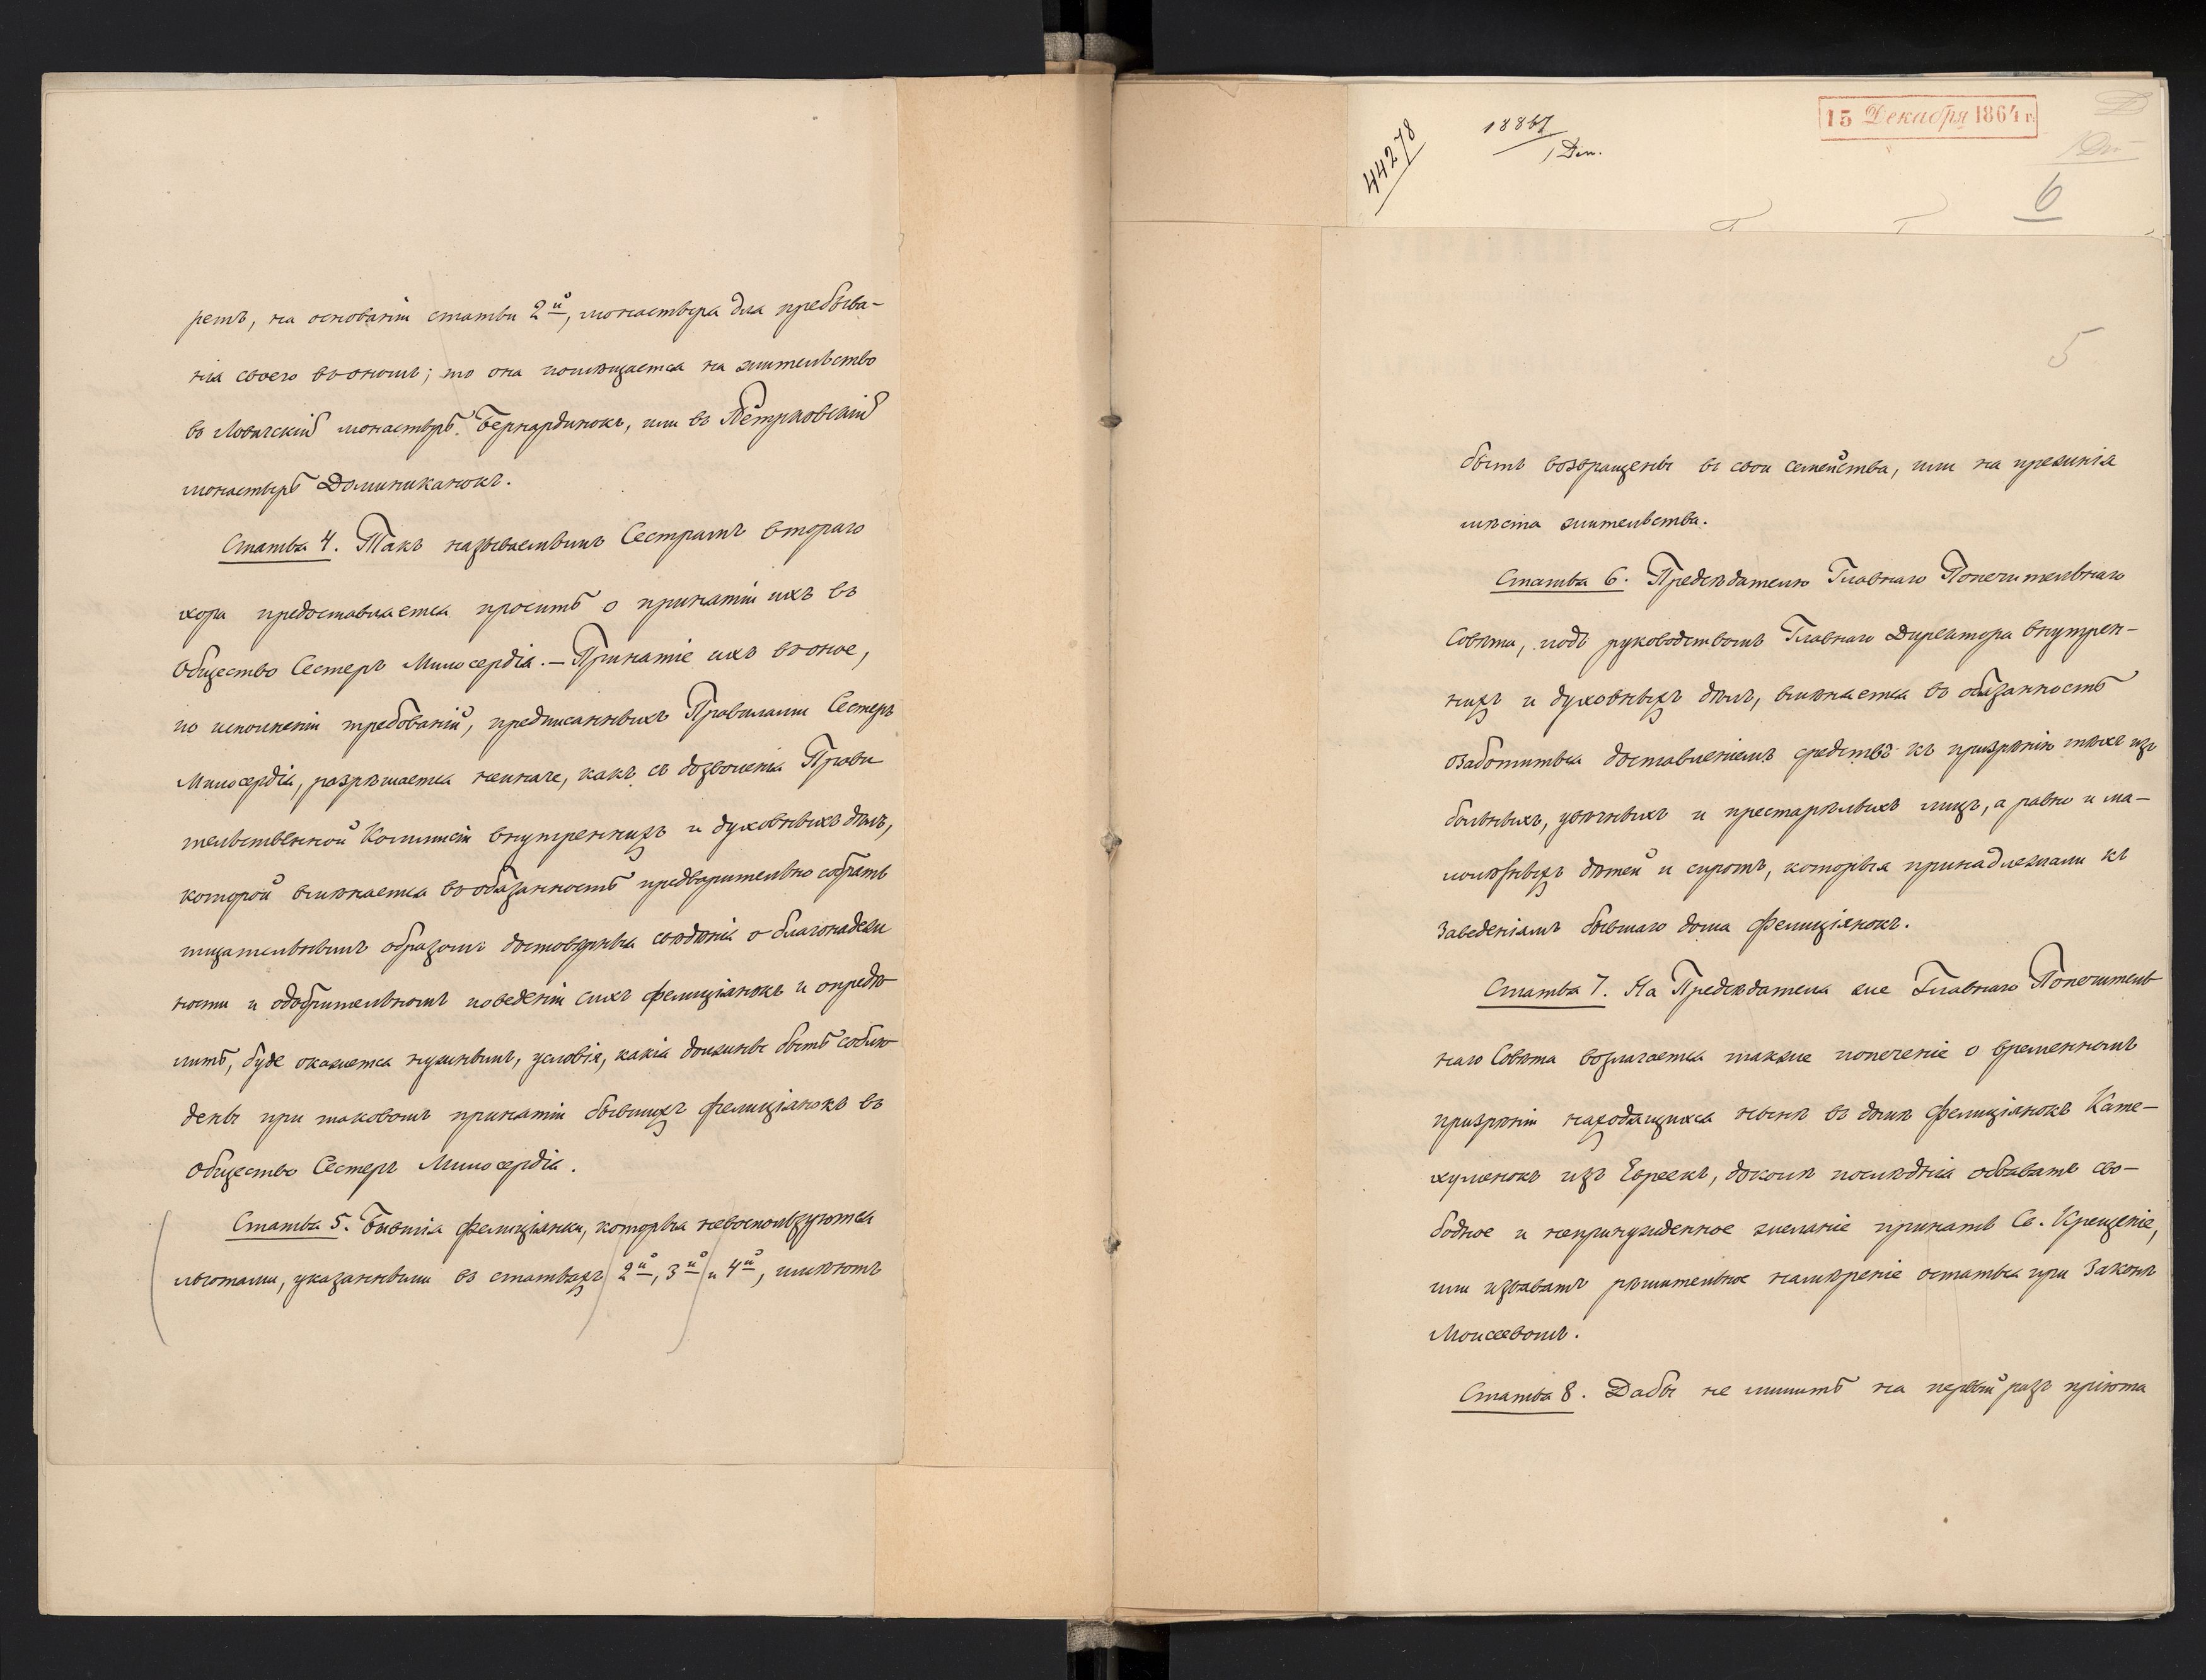 ретъ, на основаніи статьи 2й, монастыря для пребыва-
нія своего въ ономъ; то она помѣщается на жительство
въ Ловичскій монастырь Бернардинокъ, или въ Петрковскій
монастырь Доминиканокъ.
Статья 4. Такъ называемымъ Сестрамъ втораго
хора предоставляется просить о принятіи ихъ въ
Общество Сестеръ Милосердія.– Принятіе ихъ въ оное,
по исполненіи требованій, предписанныхъ Правилами Сестеръ
Милосердія, разрѣшается неиначе, какъ съ дозволенія Прави
тельственной Коммисіи внутреннихъ и духовныхъ дѣлъ,
которой вмѣняется въ обязанность предварительно собрать
тщательнымъ образомъ достовѣрныя свѣдѣнія о благонадеж
ности и одобрительномъ поведеніи сихъ фелиціянокъ и опредѣ
лить, буде окажется нужнымъ, условія, какія должны быть соблю
дены при таковомъ принятіи бывшихъ фелиціянокъ въ
Общество Сестеръ Милосердія.
Статья 5. Бывшія фелиціянки, которыя невоспользуются
льготами, указанными въ статьяхъ 2й, 3й и 4й, имѣютъ
44278
18867
1 Дек.
15 Декабря 1864 г.
6
5
быть возвращены въ свои семейства, или на прежнія
мѣста жительства.
Статья 6. Предсѣдателю Главнаго Попечительнаго
Совѣта, подъ руководствомъ Главнаго Директора внутрен-
нихъ и духовныхъ дѣлъ, вмѣняется въ обязанность
озаботиться доставленіемъ средствъ къ призрѣнію тѣхъ изъ
больныхъ, увѣчныхъ и престарѣлыхъ лицъ, а равно и ма-
лолѣтныхъ дѣтей и сиротъ, которыя принадлежали къ
заведеніямъ бывшаго дома фелиціянокъ.
Статья 7. На Предсѣдателя же Главнаго Попечитель
наго Совѣта возлагается также попеченіе о временномъ
призрѣніи находящихся нынѣ въ домѣ фелиціянокъ Кате-
хуменокъ изъ Евреекъ, доколѣ послѣднія объявятъ сво-
бодное и непринужденное желаніе принять Св. Крещеніе,
или изъявятъ рѣшительное намѣреніе остаться при Законѣ
Моисеевомъ.
Статья 8. Дабы не лишить на первый разъ пріюта